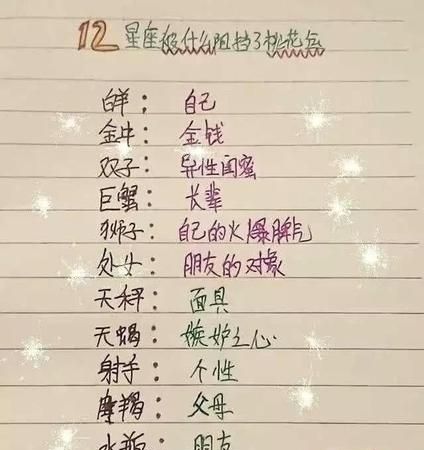 12星座被什么阻挡了桃花运
白羊：自己
金牛：金钱
双子：异性闺蜜
巨蟹：长辈
狮子：自己的火爆脾气
处女：朋友的对象
天秤：面具
天蝎：嫉妒之心
射手：个性
摩羯：父母
水瓶：朋友